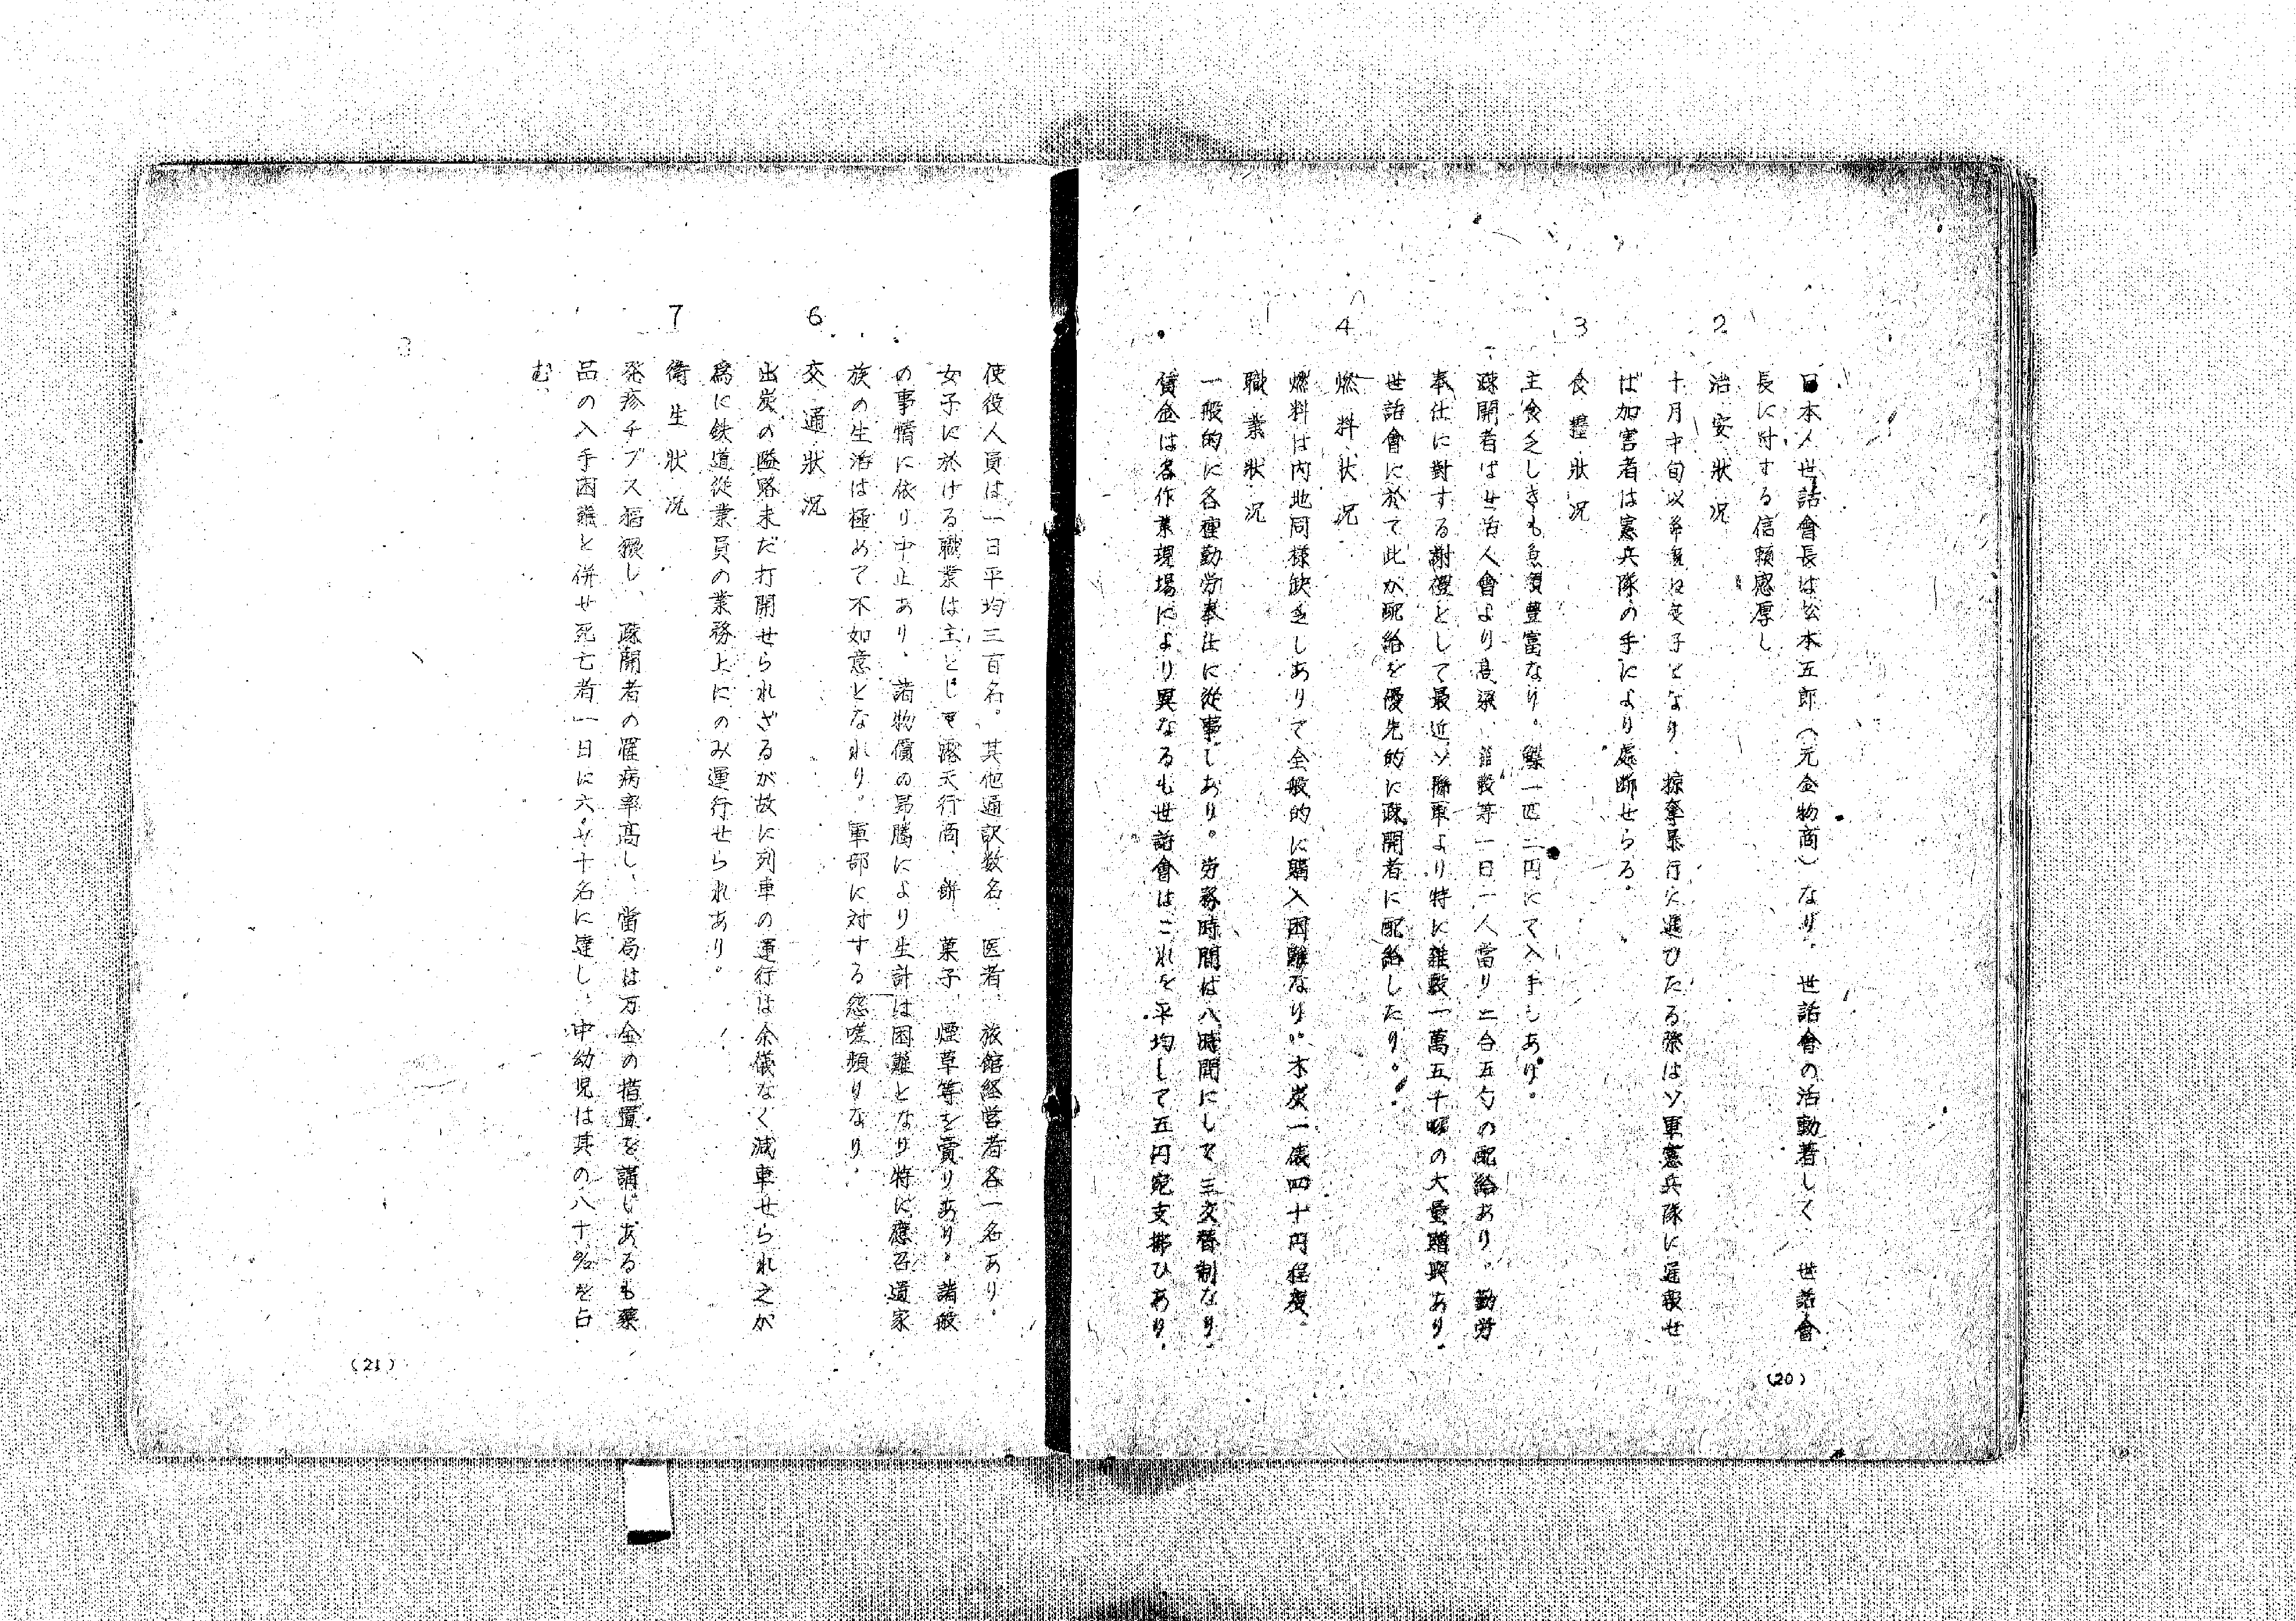 日本人世話會長は松本五郎(元金物商)なり。世話會の活動著しく、世話會
長に対する信頼感厚し
2 治安狀况
十月中旬以後 なり、掠奪暴行に遭ひたる際はソ軍憲兵隊に通報せ
ば加害者は憲兵隊の手により處断せらる。
3 食糧狀况
主食乏しきも魚類豊富なり。 一匹二円にて入手しあり。
疎開者は世話人會より高粱、雜穀等一日一人當り二合五勺の配給あり。勤労
奉仕に對する謝禮として最近ソ聯軍より特に雜穀一萬五千 の大量贈與あり、
世話會に於て此が配給を優先的に疎開者に配給したり。
4 燃料狀况
燃料は内地同様缺乏しありて全般的に購入困難なり。木炭一俵四十円程度。
職業狀况
一般的に各種勤労奉仕に從事しあり。労務時間は八時間にして三交替制なり、
賃金は各作業現場により異なるも世話會はこれを平均して五円宛支拂ひあり、
(20)
使役人員は一日平均三百名。其他通訳数名、医者、旅館経営者各一名あり。
女子に於ける職業は主として露天行商、餅、菓子、煙草等を賣りあり。諸般
の事情に依り中止あり、諸物價の昂騰により生計は困難となり特に應召遺家
族の生活は極めて不如意となれり。軍部に対する怨嗟頻りなり。
6 交通狀况
出炭の隘路未だ打開せられざるが故に列車の運行は余儀なく減車せられ之が
為に鉄道従業員の業務上にのみ運行せられあり。
7 衛生狀况
発疹チブス猖獗し、疎開者の罹病率高し、當局は万全の措置を講じあるも藥
品の入手困難と併せ死亡者一日に六、七十名に達し、中幼児は其の八十%を占
む、
(21)